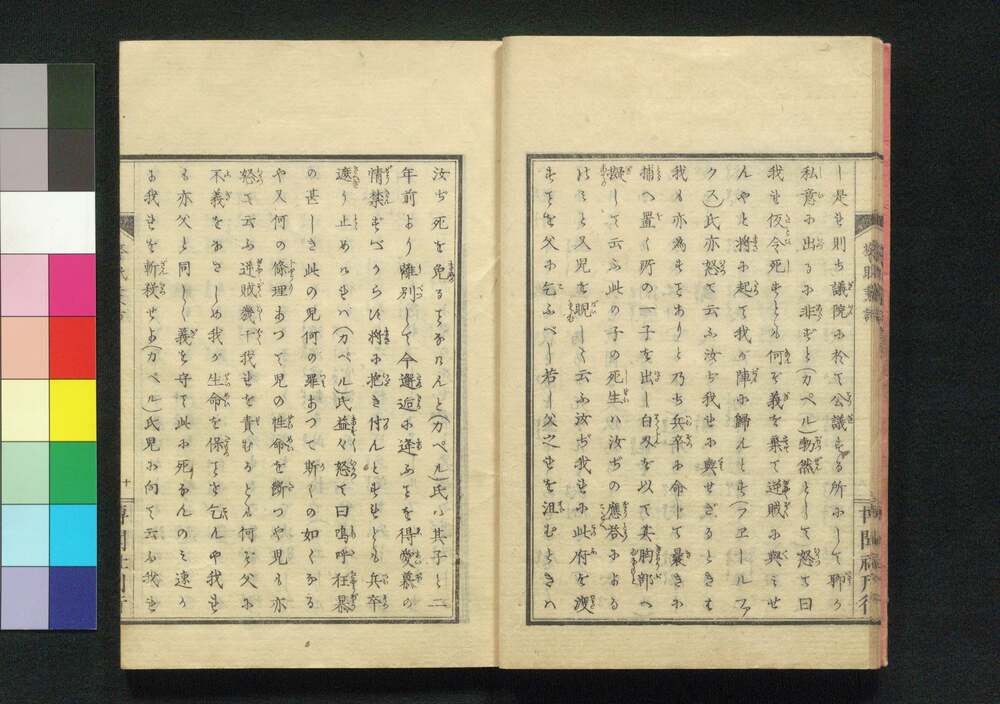 し是せ則ち議院に於て公議する所にして聊か
私意に出るに非ずと(カペル)勃然として怒て曰
我せ仮令死すとも何ぞ義を棄て逆賊に與みせ
んやと将に起て我が陣に歸んとす(フエールファ
クス)氏亦怒て云ふ汝ぢ我せに與せざるときは
我も亦為すてありと乃ち兵卒に命じて曩きに
捕へ置く所の一子を出し白刃を以て其胸部へ
擬して云ふ此の子の死生は汝ぢの應答による
のみと又児を睨して云ふ汝ぢ我せに此府を渡
すてを父に乞ふべし若し父之せを沮むときは
汝ぢ死を免るてなけんと(カペル)氏は其子と二
年前より離別して今邂逅に逢ふてを得愛慕の
情禁ずべからず将に抱き付んとすせども兵卒
遮り止めけせば(カペル)氏益々怒て曰嗚呼狂暴
の甚しき此の児何の罪あつて斯くの如くなる
や又何の條理あつて児の性命を斷つや児も亦
怒て云ふ逆賊幾干我せを責むるとも何ぞ父に
不義をなさしめ我が生命を保てを乞んや我せ
も亦父と同じく義を守て此に死なんのみ速か
に我せを斬殺せよ(カペル)氏児に向て云ふ我せ
十